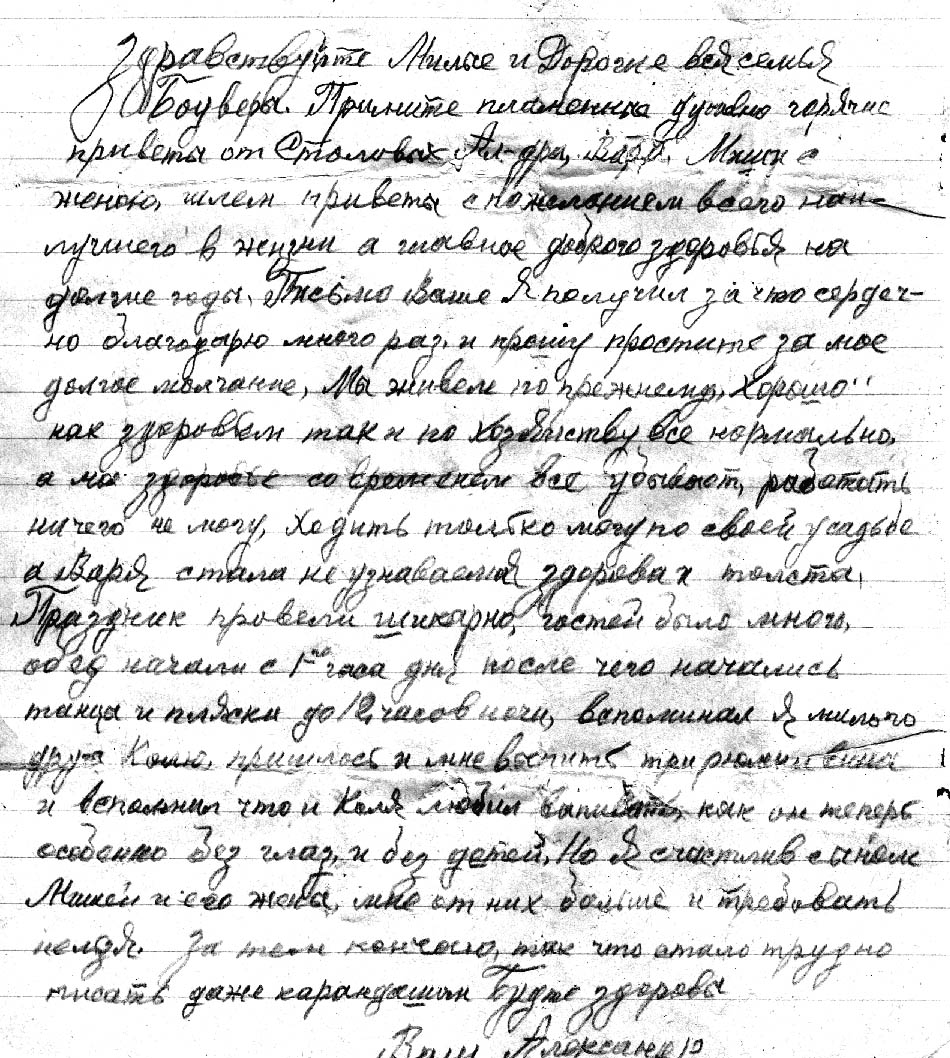 Здравствуйте Милые и Дорогие вся семья
Боуверы. Примите пламенные душевно горячие
приветы от Столовых Ал-дра, Вари, Миши с
женою, шлем приветы с пожеланием всего наи-
лучшего в жизни а главное доброго здоровья на
долгие годы. Письмо Ваше я получил за что сердеч-
но благодарю много раз, и прошу простите за мое
долгое молчание, Мы живем по прежнему, хорошо"
как здоровьем так и по хозяйству все нормально,
а мое здоровье со временем все убывает, работать
ничего не могу, ходить только могу по своей усадьбе
а Варя стала не узнаваемая здорова и толста,
Праздник провели шикарно, гостей было много,
обед начали с 1го часа дня после чего начались
танцы и пляски до 12 часов ночи, вспоминал я милого
друга Колю, пришлось и мне выпить три рюмки вина
и вспомнил что и Коля любил выпивать, как он теперь
особенно без глаз, и без детей. Но я счастлив сыном
Мишей и его жена, мне от них больше и требовать
нельзя. За тем кончаю, так что стало трудно
писать даже карандашом Будте здоровы
Ваш Александр